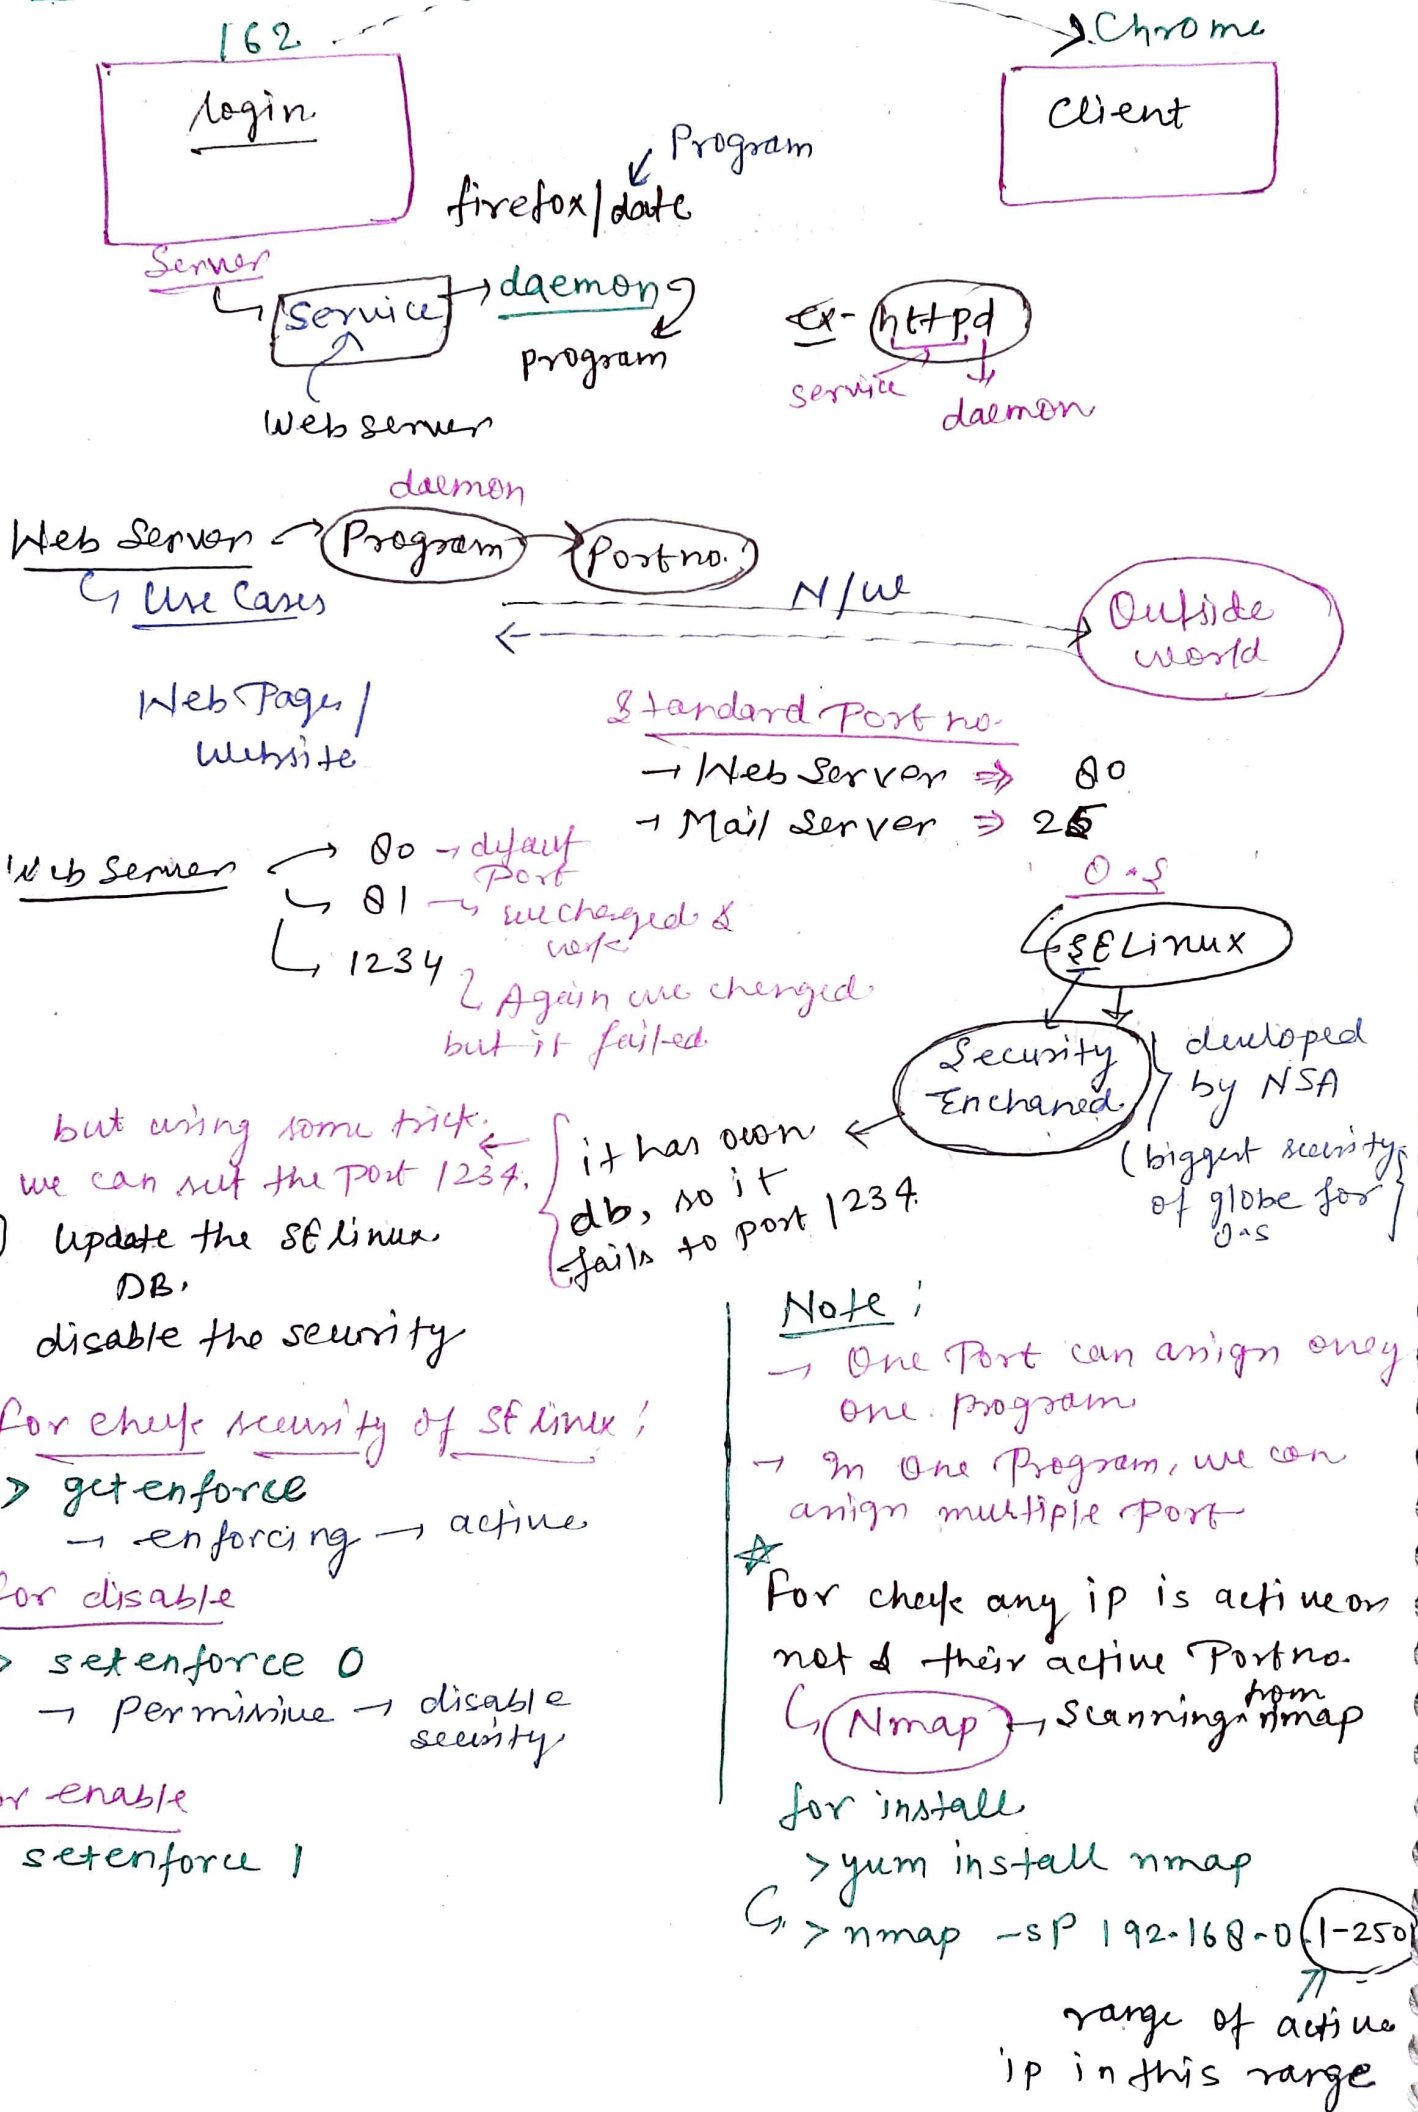 162
Chrome
login
Client
Program
firefox/date
Server
Service
daemon
program
ex- httpd
service
daemon
Web server
daemon
Web Server
Program
Port no.
Use Cases
N/W
Outside
world
Web Pages/
Website
Standard Port no.
→ Web Server ⇒ 80
→ Mail Server ⇒ 25
Web Server
80 → default
Port
81 → we changed &
work
1234
Again we changed
but it failed.
O.S
SELinux
Security
Enchaned
developed
by NSA
(biggest security
of globe for
O.S
it has own
db, so it
fails to port 1234.
but using some trick.
we can set the Port 1234.
Update the SElinux
DB.
disable the security
for check security of SE linux:
> getenforce
→ enforcing → active
for disable
> setenforce 0
→ permissive → disable
security
or enable
setenforce 1
Note:
→ One Port can assign only
one program
→ In one Program, we can
assign multiple Port
☆
For check any ip is active or
not & their active Port no.
Nmap → scanning from nmap
for install
>yum install nmap
> nmap -sP 192.168.0.1-250
range of active
ip in this range